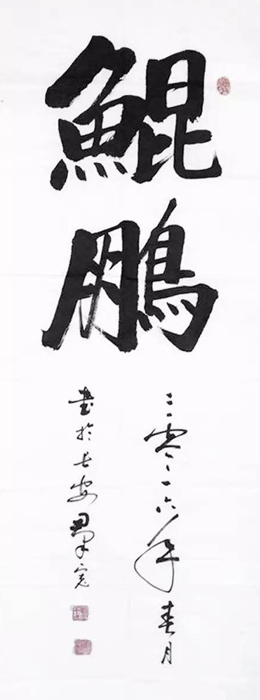 鯤鵬
二零一六年春月
書於长安